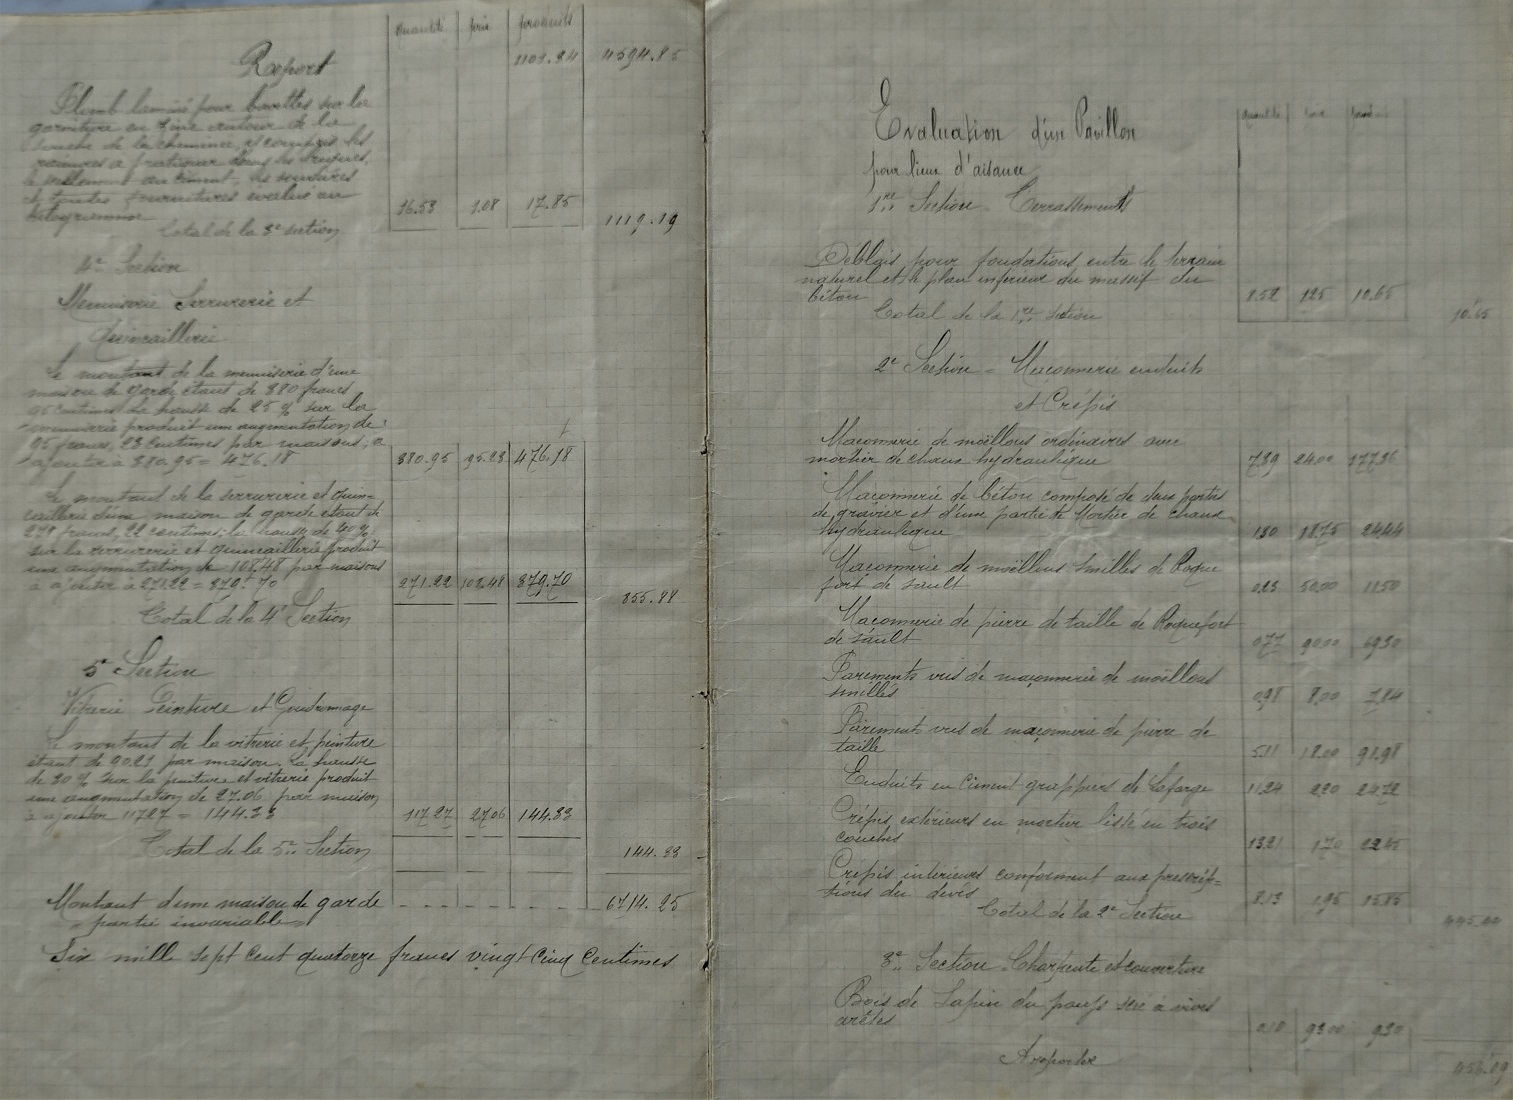 quantité prix produits
Report 1101.34 4594.85
Plomb laminé pour bavettes sur la
garniture en zinc autour de la
souche de la cheminée, y compris les
rainures à pratiquer dans les briques,
le scellement au ciment, les soudures
et toutes fournitures évalué au
kilogramme 16.53 1.08 17.85
Total de la 3e section 1119.19
4e Section
Menuiserie Serrurerie et
Quincaillerie
Le montant de la menuiserie d'une
maison de garde étant de 380 francs
95 centimes la hausse de 25 % sur la
menuiserie produit une augmentation de
95 francs, 23 centimes par maisons, à
ajouter à 380.95 = 476.18 380.95 95.23 476.18
Le montant de la serrurerie et quin-
caillerie d'une maison de garde étant de
271 francs, 22 centimes, la hausse de 40 %
sur la serrurerie et quincaillerie produit
une augmentation de 108,48 par maisons
à ajouter à 271.22 = 379.70 271.22 108.48 379.70
Total de la 4e Section 855.88
5e Section
Vitrerie Peinture et Goudronnage
Le montant de la vitrerie et peinture
étant de 90.21 par maison. La hausse
de 30 % sur la peinture et vitrerie produit
une augmentation de 27.06 par maison
à ajouter 117.27 = 144.33 117.27 27.06 144.33
Total de la 5e Section 144.33
Montant d'une maison de garde 6714.25
partie invariable
Six mille sept cent quatorze francs vingt cinq centimes
quantité prix produit
Evaluation d'un Pavillon
pour lieux d'aisance
1re Section = Terrassements
Déblais pour fondations entre le terrain
naturel et le plan inférieur du massif du
béton 8.52 1.25 10.65
Total de la 1re section 10.65
2e Section = Maçonnerie enduits
et Crépis
Maçonnerie de moëllons ordinaires avec
mortier de chaux hydraulique 7.39 24.00 177.36
Maçonnerie de béton composé de deux parties
de gravier et d'une partie de Mortier de chaux
hydraulique 1.30 18.75 24.44
Maçonnerie de moëllons smillés de Roque
fort de Sault 0.23 50.00 11.50
Maçonnerie de pierre de taille de Roquefort
de Sault 0.77 90.00 69.30
Parements vus de maçonnerie de moëllons
smillés 0.98 8.00 7.84
Parements vus de maçonnerie de pierre de
taille 5.11 18.00 91.98
Enduits en Ciment grappiers de Lafarge 11.24 2.20 24.72
Crépis extérieurs en mortier lissé en trois
couches 13.21 1.70 22.45
Crépis intérieurs conforment aux prescrip=
tions du devis 8.13 1.95 15.85
Total de la 2e Section 445.44
3e Section Charpente et couverture
Bois de Sapin du pays scié à vives
arêtes 0.10 93.00 9.30
A reporter